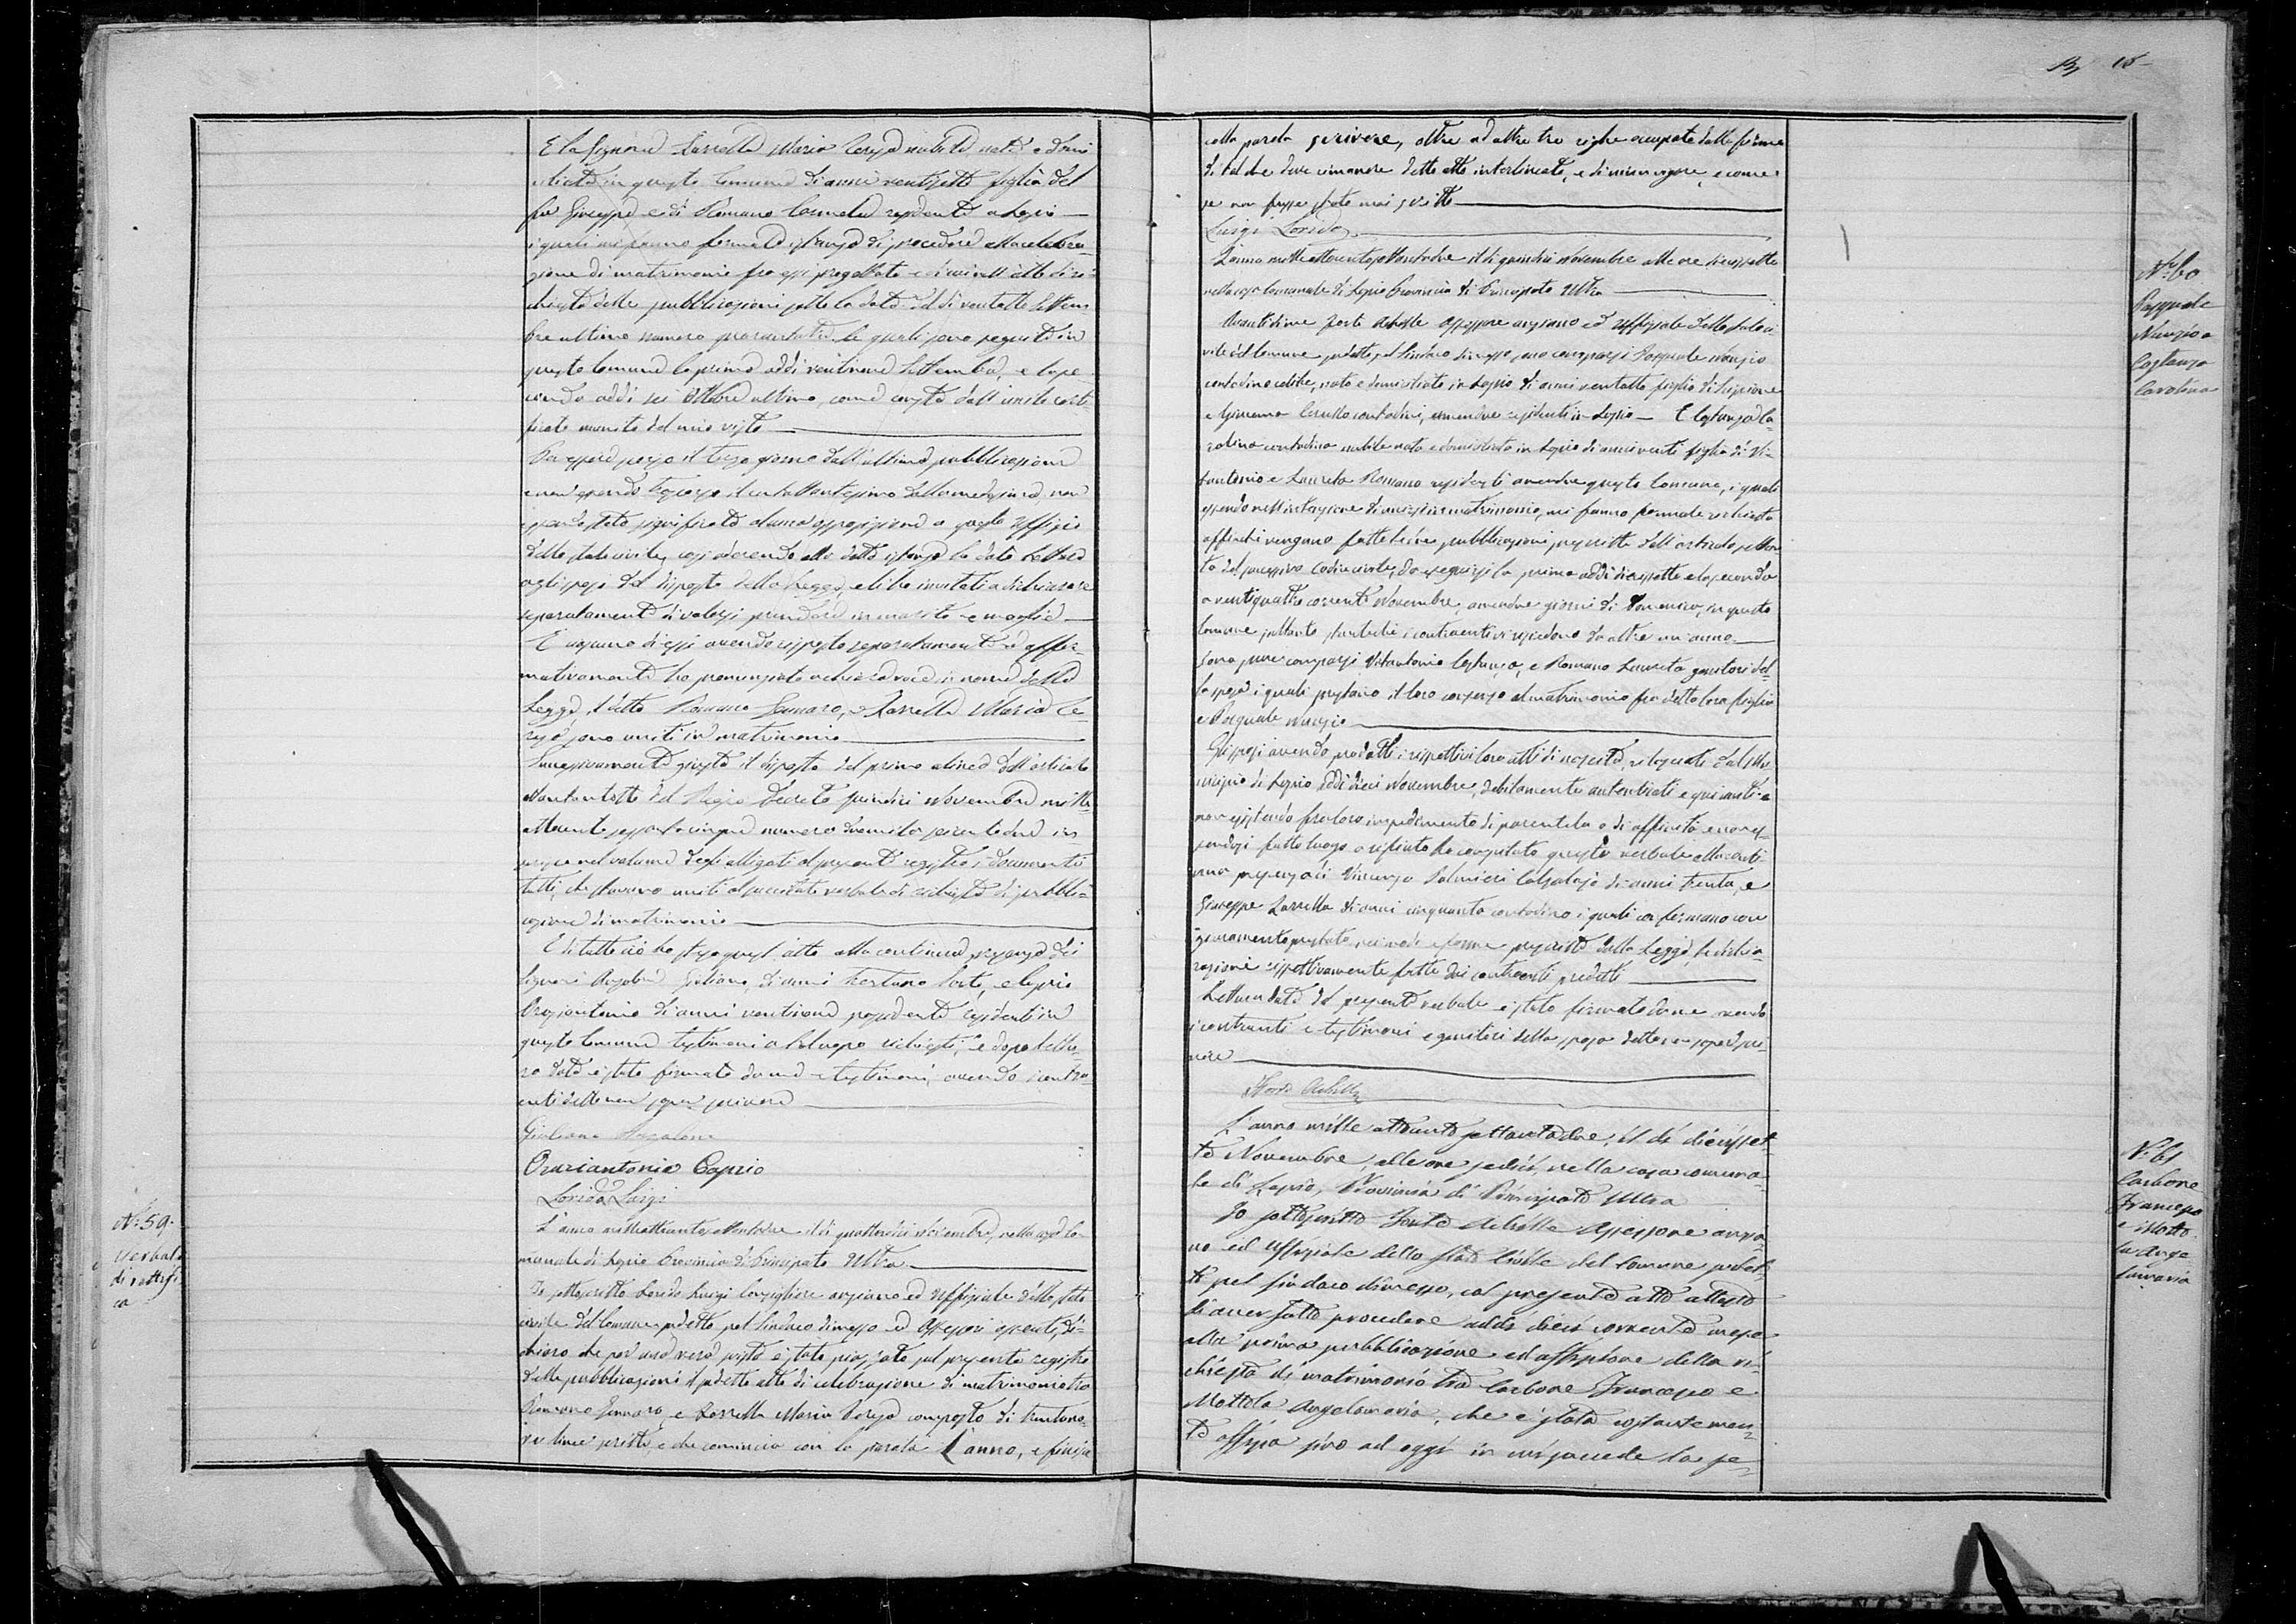 E la Signora Zarrella Maria Teresa nubile nata e domi
ciliata in questo Comune di anni ventisette figlia del
fu Giuseppe e di Romano Carmela residente a Lapio
i quali mi fanno formale istanza di procedere alla celebra
zione di matrimonio fra essi progettato e di cui nell'atto di ri-
chiesta delle pubblicazioni sotto la data del dì ventotto Settem
bre ultimo numero le quali sono seguite in
questo Comune la prima addì ventinove Settembre, e la se-
conda addì sei Ottobre ultimo, come consta dall'unito certi-
ficato munito del mio visto
Per essere scorso il terzo giorno dall'ultima pubblicazione
e non essendo trascorso il centottantesimo dalla medesima, non
essendo stata significata alcuna opposizione a questo Uffizio
dello stato civile, così aderendo alla detta istanza ho dato lettura
agli sposi del disposto della Legge, e li ho invitati a dichiarare
separatamente di volersi prendere in marito e moglie
E ognuno di essi avendo risposto separatamente ed affer-
mativamente ho pronunziato a chiara voce in nome della
Legge, i detti Romano Gennaro, e Zarrella Maria Te-
resa sono uniti in matrimonio
Successivamente giusta il disposto del primo alinea dell'articolo
del Regio Decreto quindici Novembre mille
ottocento sessantacinque numero duemila seicentodue in
nel volume degli alligati al presente registro i documenti
tutti, che stavano uniti al verbale di richiesta di pubbli-
cazione di matrimonio
E di tutto ciò ho steso quest'atto alla continua presenza dei
Signori Anzalone Giuliano, di anni trentuno Sarto, e Caprio
Oraziantonio di anni ventinove possidente residenti in
questo Comune testimoni a tal uopo richiesti, e dopo lettu-
ra data è stato firmato da me e testimoni, avendo i contra-
enti detto non saper scrivere
Giuliano Anzalone
Oraziantonio Caprio
Lorido Luigi
N.º 59.
Verbale
di rettifi-
ca
L'anno milleottocentosettantadue il dì quattordici Novembre, nella casa Co-
munale di Lapio Provincia di Principato Ultra
Io sottoscritto Lorido Luigi Consigliere anziano ed Uffiziale dello stato
civile del Comune predetto pel Sindaco dimesso ed Assessori assenti, di-
chiaro che per una vera svista è stato piazzato sul presente registro
delle pubblicazioni il predetto atto di celebrazione di matrimonio tra
Romano Gennaro, e Zarrella Maria Teresa composto di trentano-
ve linee scritte, e che comincia con la parola L'anno, e finisce
alla parola scrivere, oltre ad altre tre righe occupate dalle firme
di tal che deve rimanere detto atto interlineato, e di niun vigore, e come
se non fusse stato mai scritto
Luigi Lorido
N.º 60
Pasquale
Nunzio e
Costanza
Carolina
L'anno milleottocentosettantadue il dì quindici Novembre alle ore diciassette
nella casa Comunale di Lapio Provincia di Principato Ultra
Avanti di me Forte Achille Assessore anziano ed Uffiziale dello stato ci
vile del Comune predetto pel Sindaco dimesso, sono comparsi Pasquale Nunzio
contadino celibe, nato e domiciliato in Lapio di anni ventotto figlio di Scipione
e Giovanna Carullo contadini, amendue residenti in Lapio — E Costanza Ca-
rolina contadina nubile nata e domiciliata in Lapio di anni venti figlia di Vi-
tantonio e Laureta Romano residenti amendue questo Comune, i quali
essendo nell'intenzione di unirsi in matrimonio, mi fanno formale richiesta
affinchè vengano fatte le due pubblicazioni prescritte dall'articolo settan
ta del Codice civile, da eseguirsi la prima addì diciassette e la seconda
a ventiquattro corrente Novembre, amendue giorni di Domenica, in questo
Comune soltanto stantechè i contraenti vi risiedono da oltre un anno
Sono pure comparsi Vitantonio Costanza, e Romano Laureta genitori del-
la sposa i quali prestano il loro consenso al matrimonio fra detta loro figlia
e Pasquale Nunzio
Gli sposi avendo prodotti i rispettivi loro atti di nascita, rilasciati dal Mu
nicipio di Lapio addì dieci Novembre, debitamente autenticati e qui uniti e
non esistendo fra loro impedimento di parentela o di affinità e non es-
sendosi fatto luogo a rifiuto ho compilato questo verbale alla conti
nua presenza di Vincenzo Palmieri Calzolajo di anni trenta, e
Giuseppe Zarrella di anni cinquanta contadino i quali confermano con
giuramento prestato nei modi e forme prescritte dalla Legge, le dichia-
razioni rispettivamente fatte dai contraenti predetti
Lettura data del presente verbale è stato firmato da me avendo
i contraenti e testimoni e genitori della sposa detto non sapere scri-
vere
Forte Achille
N.º 61
Carbone
Francesco
e Motto-
la Ange
lamaria
L'anno mille ottocento settantadue, il dì dieciset-
te Novembre, alle ore sedici, nella casa comuna-
le di Lapio, Provincia di Principato Ultra
Io sottoscritto Forte Achille Assessore anzia-
no ed Uffiziale dello Stato Civile del Comune predet-
to pel Sindaco dimesso, col presente atto attesto
di aver fatto procedere addì dieci corrente mese
alla prima pubblicazione ed affissione della ri-
chiesta di matrimonio tra Carbone Francesco e
Mottola Angelamaria, che è stata costantemen-
te affissa sino ad oggi in cui succede la se-